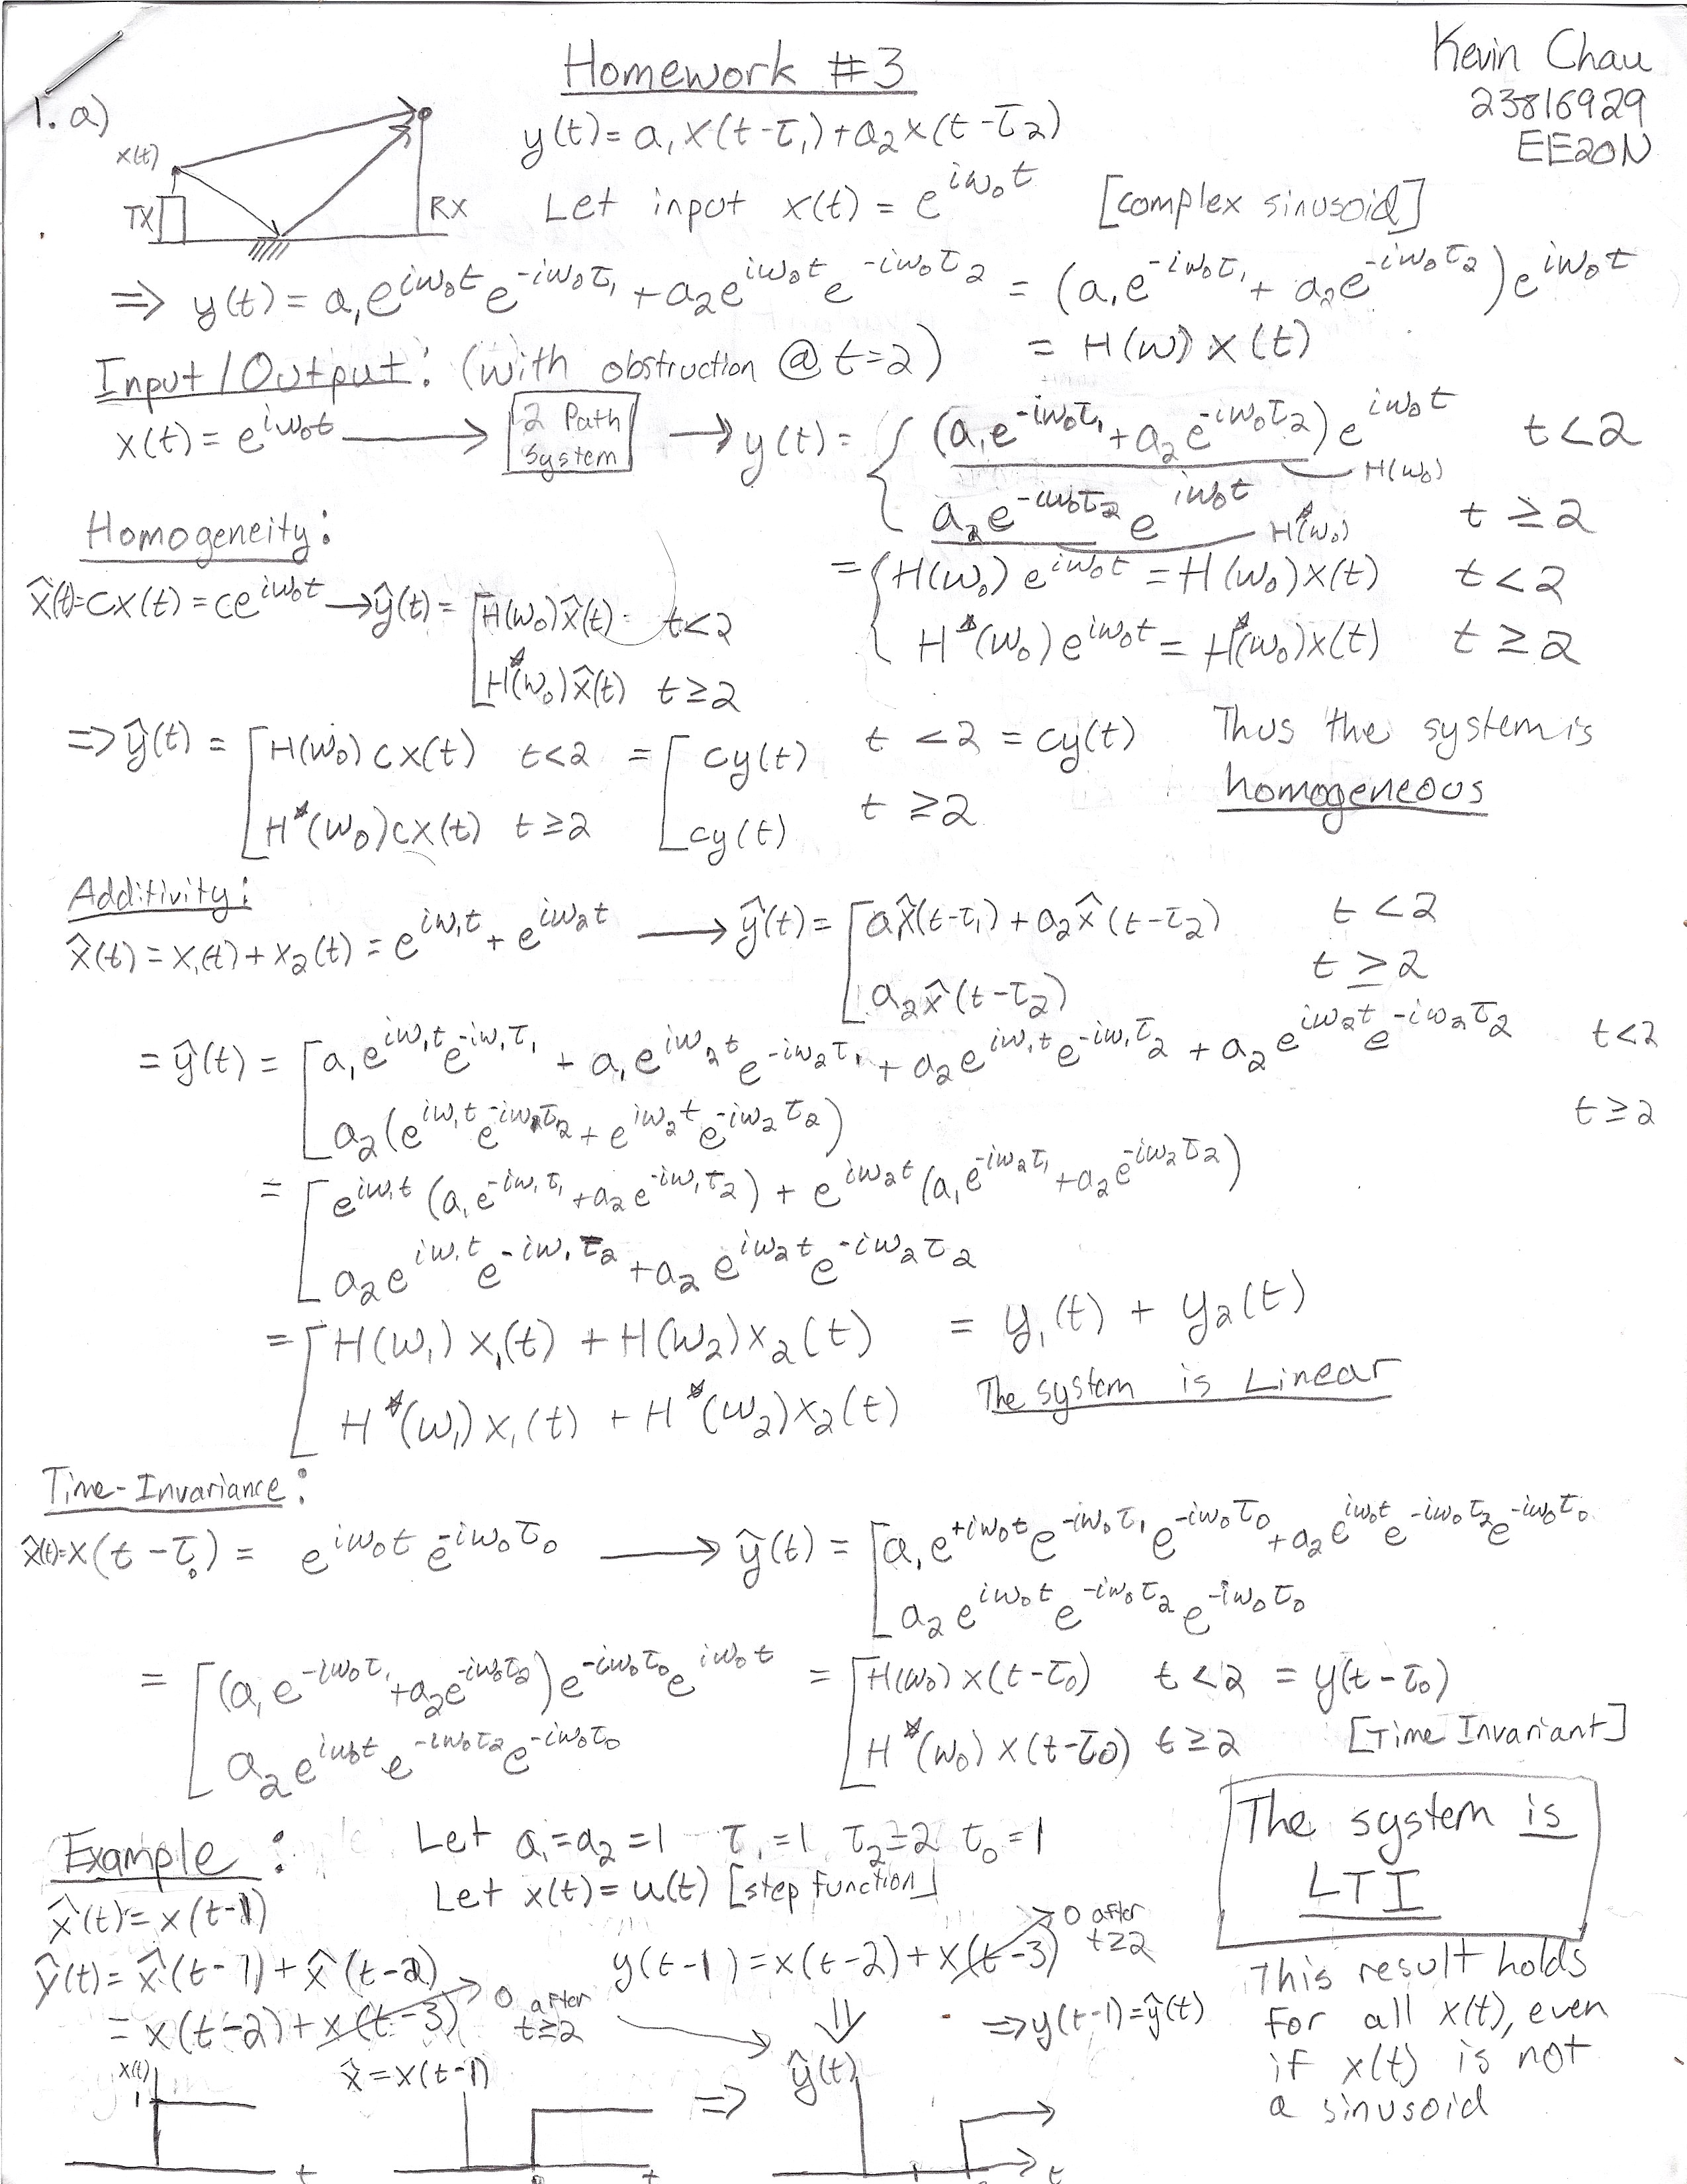 Homework #3
Kevin Chau
23816929
EE20N
1. a)
x(t)
TX
RX
y(t) = a₁x(t-τ₁)+a₂x(t-τ₂)
Let input x(t) = e^{iω₀t} [complex sinusoid]
⇒ y(t) = a₁e^{iω₀t}e^{-iω₀τ₁} + a₂e^{iω₀t}e^{-iω₀τ₂} = (a₁e^{-iω₀τ₁} + a₂e^{-iω₀τ₂})e^{iω₀t}
= H(ω) x(t)
Input/Output: (with obstruction @ t=2)
x(t) = e^{iω₀t} → 2 Path System → y(t) = { (a₁e^{-iω₀τ₁}+a₂e^{-iω₀τ₂})e^{iω₀t} t<2
H(ω₀)
a₂e^{-iω₀τ₂}e^{iω₀t} t≥2
H*(ω₀)
= { H(ω₀)e^{iω₀t} = H(ω₀)x(t) t<2
H*(ω₀)e^{iω₀t} = H*(ω₀)x(t) t≥2
Homogeneity:
x̂(t)=cx(t) = ce^{iω₀t} → ŷ(t) = [ H(ω₀)x̂(t) t<2
H*(ω₀)x̂(t) t≥2
⇒ ŷ(t) = [ H(ω₀)cx(t) t<2 = [ cy(t) t<2 = cy(t)
H*(ω₀)cx(t) t≥2 cy(t) t≥2
Thus the system is
homogeneous
Additivity:
x̂(t) = x₁(t)+x₂(t) = e^{iω₁t} + e^{iω₂t} → ŷ(t) = [ ax̂(t-τ₁) + a₂x̂(t-τ₂) t<2
a₂x̂(t-τ₂) t≥2
= ŷ(t) = [ a₁e^{iω₁t}e^{-iω₁τ₁} + a₁e^{iω₂t}e^{-iω₂τ₁} + a₂e^{iω₁t}e^{-iω₁τ₂} + a₂e^{iω₂t}e^{-iω₂τ₂} t<2
a₂(e^{iω₁t}e^{-iω₁τ₂} + e^{iω₂t}e^{-iω₂τ₂}) t≥2
= [ e^{iω₁t}(a₁e^{-iω₁τ₁}+a₂e^{-iω₁τ₂}) + e^{iω₂t}(a₁e^{-iω₂τ₁}+a₂e^{-iω₂τ₂})
a₂e^{iω₁t}e^{-iω₁τ₂} + a₂e^{iω₂t}e^{-iω₂τ₂}
= [ H(ω₁)x₁(t) + H(ω₂)x₂(t) = y₁(t) + y₂(t)
H*(ω₁)x₁(t) + H*(ω₂)x₂(t) The system is Linear
Time-Invariance:
x̂(t)=x(t-τ₀) = e^{iω₀t}e^{-iω₀τ₀} → ŷ(t) = [ a₁e^{+iω₀t}e^{-iω₀τ₁}e^{-iω₀τ₀} + a₂e^{iω₀t}e^{-iω₀τ₂}e^{-iω₀τ₀}
a₂e^{iω₀t}e^{-iω₀τ₂}e^{-iω₀τ₀}
= [ (a₁e^{-iω₀τ₁}+a₂e^{-iω₀τ₂})e^{-iω₀τ₀}e^{iω₀t} = [ H(ω₀)x(t-τ₀) t<2 = y(t-τ₀)
a₂e^{iω₀t}e^{-iω₀τ₂}e^{-iω₀τ₀} H*(ω₀)x(t-τ₀) t≥2 [Time Invariant]
The system is
LTI
This result holds
for all x(t), even
if x(t) is not
a sinusoid
Example: Let a₁=a₂=1 τ₁=1 τ₂=2 τ₀=1
Let x(t) = u(t) [step function]
x̂(t) = x(t-1)
ŷ(t) = x̂(t-1) + x̂(t-2)
= x(t-2) + x(t-3) 0 after t≥2
y(t-1) = x(t-2) + x(t-3) 0 after t≥2
⇒ y(t-1) = ŷ(t)
x(t)
1
t
x̂ = x(t-1)
t
⇒
ŷ(t)
t